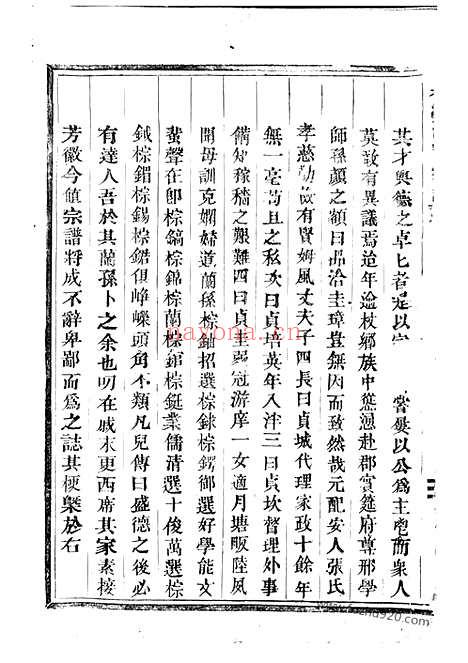 其才與德之卓匕者遥以宗 嘗發以公爲主鬯而衆人
莫敢有異議焉迨年逾杖鄉族中慫慂赴郡賞筵府尊邢學
師孫顏之額曰品洽圭璋豈無因而致然哉元配安人張氏
孝慈勤儉有賢姆風丈夫子四長曰貞城代理家政十餘年
無一毫苟且之私次曰貞培英年入泮三曰貞坎督理外事
備知稼穡之艱難四曰貞堊弱冠游庠一女適月塘販陸風
開母訓克嫻婦道蘭孫棕鈾招選棕銶棕鍔御選好學能文
蜚聲在卽棕鎬棕錦棕蘭棕錧棕鋌業儒清選十俊萬選棕
鉞棕錯棕錫棕鍩俱崢嶸頭角不類凡兒傳曰盛德之後必
有達人吾於其蘭孫卜之余也叨在戚末更西席其家素接
芳徽今值宗譜將成不辭卑鄙而爲之誌其梗槩於右
paxona.com
https://fuzhao920.com